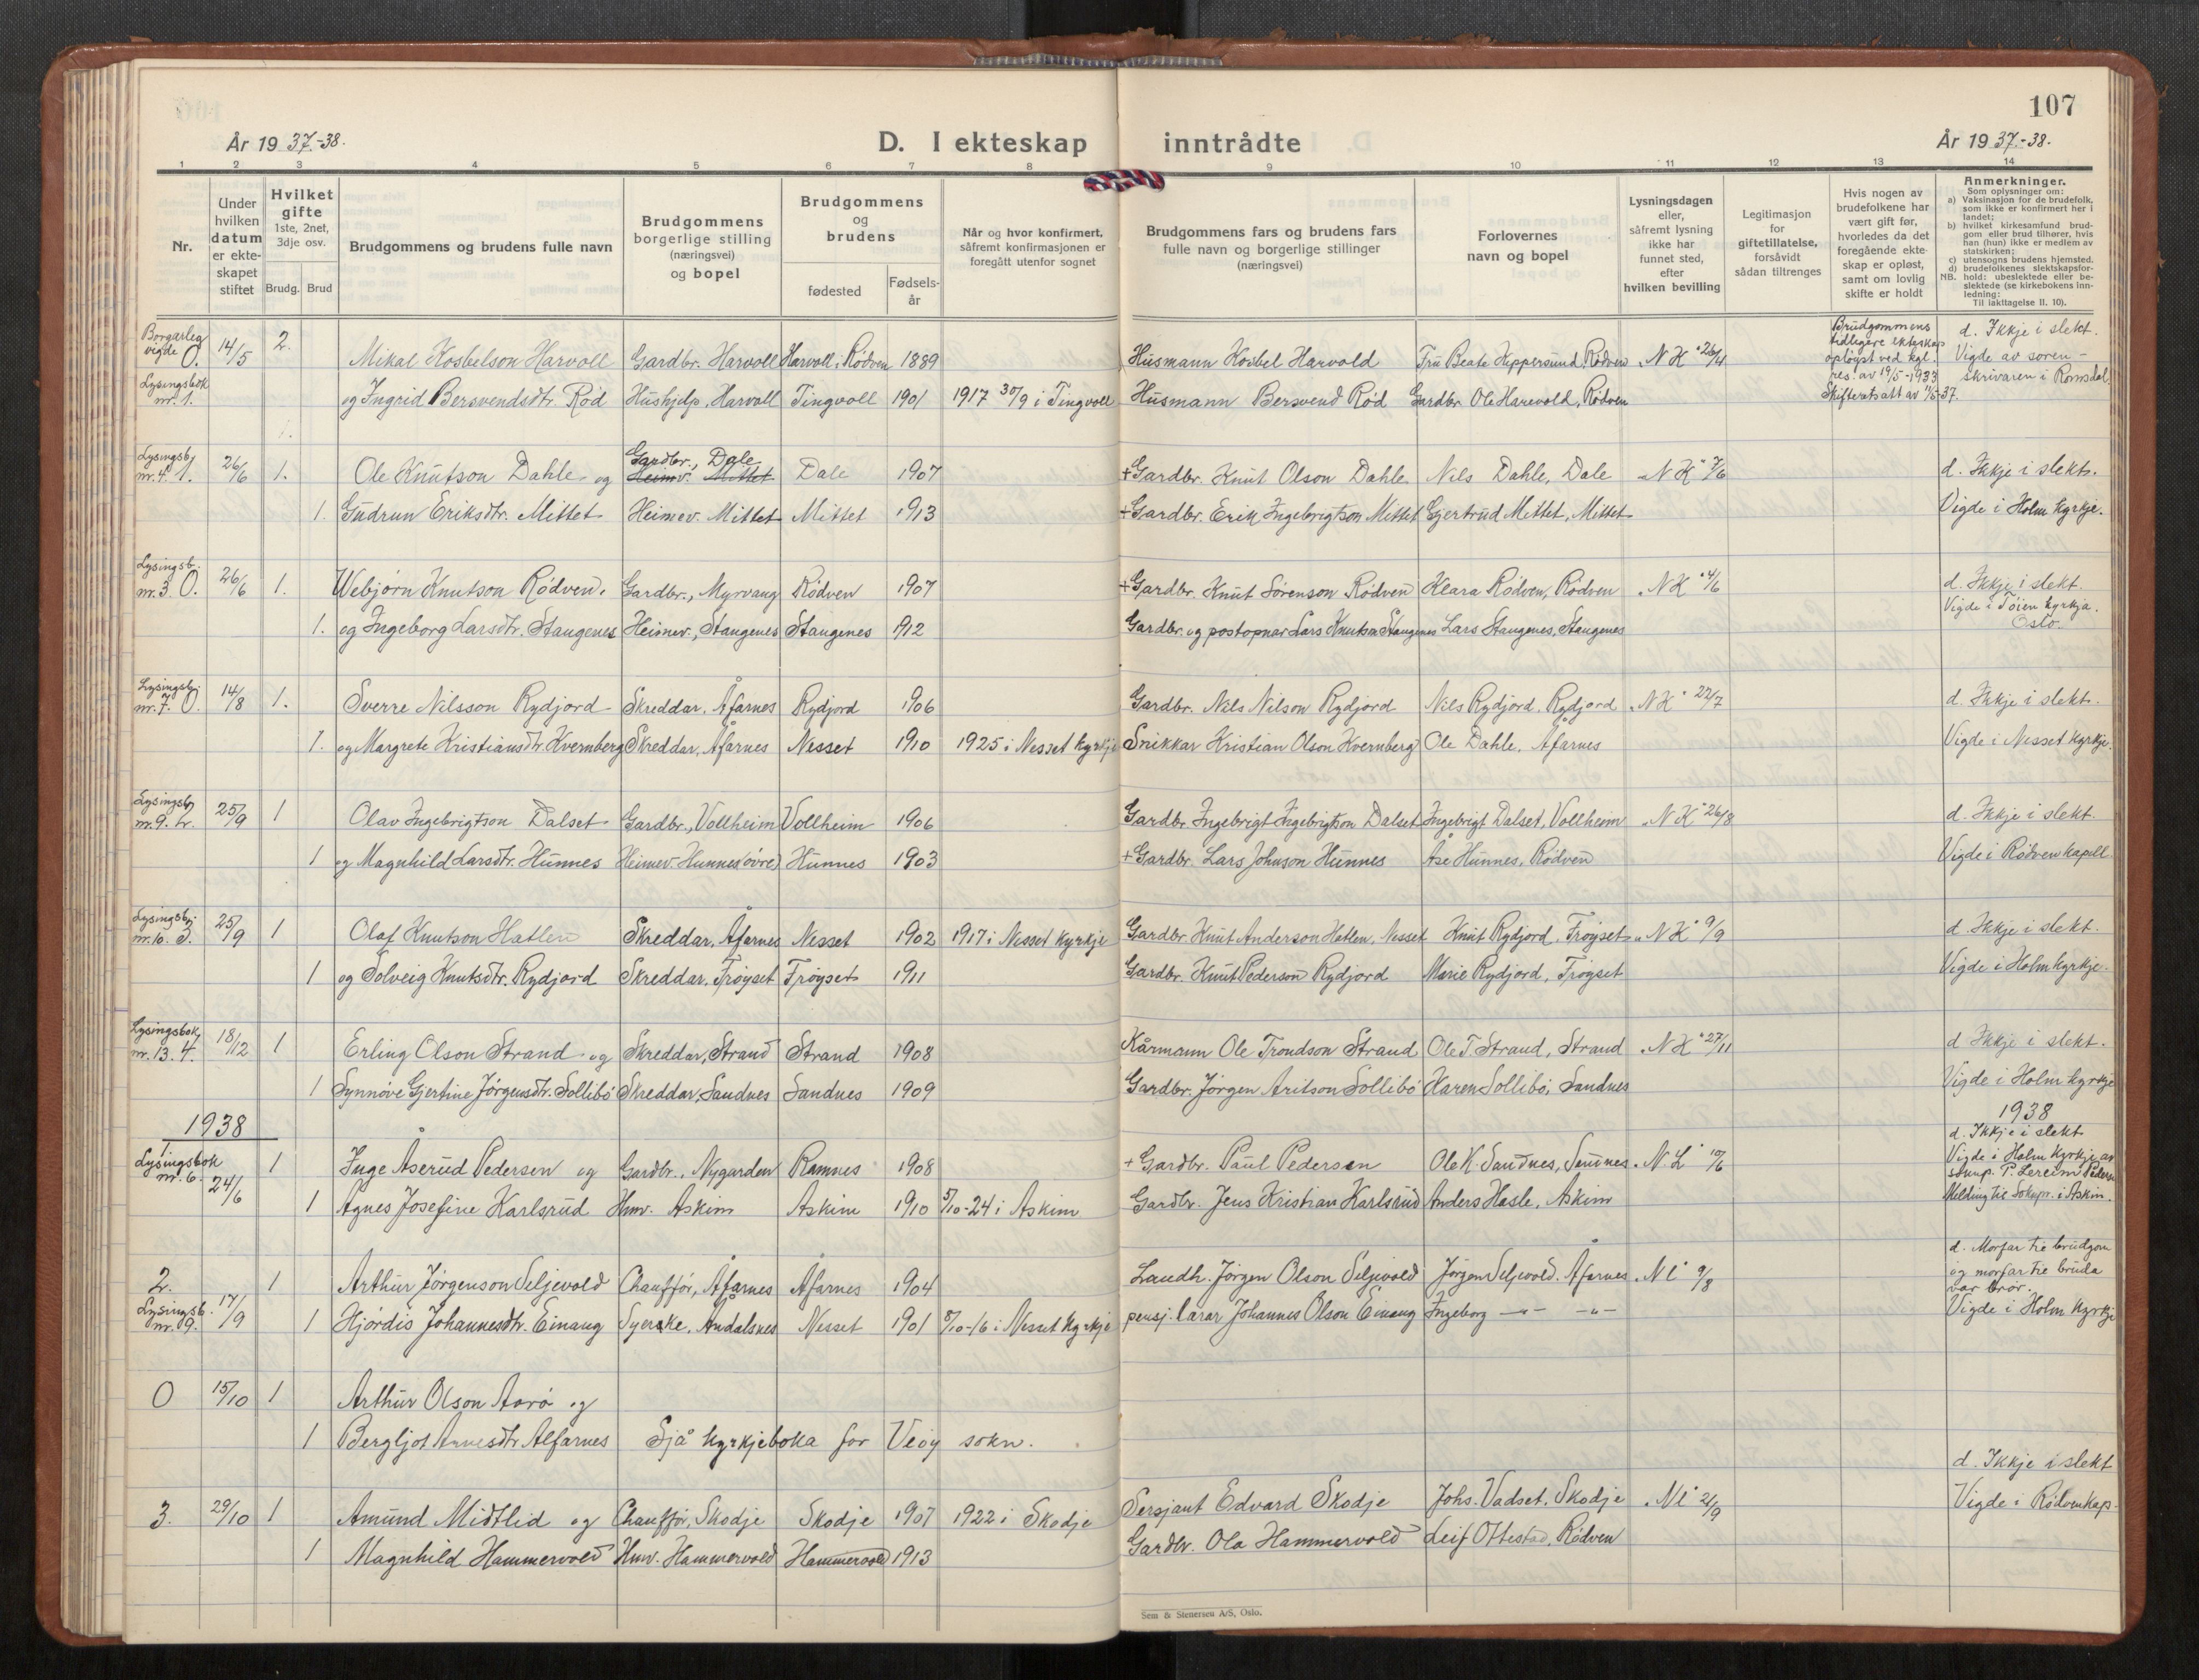 107
År 1937-38.
D. I ekteskap inntrådte
År 1937-38.
1 2 3 4 5 6 7 8 9 10 11 12 13 14
Nr.
Under hvilken datum er ekteskapet stiftet
Hvilket gifte 1ste, 2net, 3dje osv.
Brudg. Brud
Brudgommens og brudens fulle navn
Brudgommens borgerlige stilling (næringsvei) og bopel
Brudgommens og brudens
fødested
Fødselsår
Når og hvor konfirmert, såfremt konfirmasjonen er foregått utenfor sognet
Brudgommens fars og brudens fars fulle navn og borgerlige stillinger (næringsvei)
Forlovernes navn og bopel
Lysningsdagen eller, såfremt lysning ikke har funnet sted, efter hvilken bevilling
Legitimasjon for giftetillatelse, forsåvidt sådan tiltrenges
Hvis nogen av brudefolkene har vært gift før, hvorledes da det foregående ekteskap er opløst, samt om lovlig skifte er holdt
Anmerkninger.
Som oplysninger om:
a) Vaksinasjon for de brudefolk, som ikke er konfirmert her i landet;
b) hvilket kirkesamfund brudgom eller brud tilhører, hvis han (hun) ikke er medlem av statskirken;
c) utensogns brudens hjemsted.
d) brudefolkenes slektskapsforhold: ubeslektede eller beslektede (se kirkebokens innledning:
NB. Til iakttagelse II. 10).
Borgarleg vigde O. 14/5 2. Mikal Kosbelson Harvoll Gardbr. Harvoll Harvoll, Rødven 1889 Husmann Kosbel Harvold Fru Beate Heppersund, Rødven N K° 26/4 Brudgommens tidligere ekteskap opløyst ved kgl. res. av 19/5-1933 d. Ikkje i slekt. Vigde av soren-
Lysingsbok nr. 1. og Ingrid Bersvendsdtr. Rød Hushjelp, Harvoll Tingvoll 1901 1917 30/9 i Tingvoll Husmann Bersvend Rød Gardbr. Ole Harevold, Rødven Skifteratsatt av 11/5-37. skrivaren i Romsdal.
Lysingsb. nr. 4. 1. 26/6 1. Ole Knutson Dahle og Gardbr., Dale Heimv. Mittet Dale 1907 + Gardbr. Knut Olson Dahle Nils Dahle, Dale N K° 7/6 d. Ikkje i slekt.
1. Gudrun Eriksdtr. Mittet Heimev. Mittet Mittet 1913 + Gardbr. Erik Ingebrigtson Mittet Gjertrud Mittet, Mittet Vigde i Holm kyrkje.
Lysingsb. nr. 3. O. 26/6 1. Webjørn Knutson Rødven. Gardbr., Myrvang Rødven 1907 + Gardbr. Knut Sørenson Rødven Klara Rødven, Rødven N K° 4/6 d. Ikkje i slekt.
1. og Ingeborg Larsdtr. Staugenes Heimev., Staugenes Staugenes 1912 Gardbr. og postopnar Lars Knutson Staugenes Lars Staugenes, Staugenes Vigde i Tøien kyrkja. Oslo.
Lysingsb. nr. 7. O. 14/8 1. Sverre Nilsson Rydjord Skreddar, Åfarnes Rydjord 1906 Gardbr. Nils Nilson Rydjord Nils Rydjord, Rydjord N K° 22/7 d. Ikkje i slekt.
1. og Margrete Kristiansdtr. Kvernberg Skreddar, Åfarnes Nesset 1910 1925 i Nesset kyrkje Snikkar Kristian Olson Kvernberg Ole Dahle, Åfarnes Vigde i Nesset kyrkje.
Lysingsb. nr. 9. 2. 25/9 1 Olav Ingebrigtson Dalset Gardbr., Vollheim Vollheim 1906 Gardbr. Ingebrigt Ingebrigtson Dalset Ingebrigt Dalset, Vollheim N K° 26/8 d. Ikkje i slekt.
1 og Magnhild Larsdtr. Hunnes Heimev. Hunnes (øvre) Hunnes 1903 + Gardbr. Lars Johnson Hunnes Åse Hunnes, Rødven Vigde i Rødven kapell
Lysingsb. nr. 10. 3. 25/9 1 Olaf Knutson Hatlen Skreddar, Åfarnes Nesset 1902 1917 i Nesset kyrkje Gardbr. Knut Anderson Hatlen, Nesset Knut Rydjord, Frøyset N K° 9/9 d. Ikkje i slekt.
1 og Solveig Knutsdtr. Rydjord Skreddar, Frøyset Frøyset 1911 Gardbr. Knut Pederson Rydjord Marie Rydjord, Frøyset Vigde i Holm kyrkje.
Lysingsbok nr. 13. 4. 18/12 1 Erling Olson Strand og Skreddar, Strand Strand 1908 Kårmann Ole Trondson Strand Ole T. Strand, Strand N K° 27/11 d Ikkje i slekt.
1 Synnøve Gjertine Jørgensdtr. Sollibø Skreddar, Sandnes Sandnes 1909 Gardbr. Jørgen Aritson Sollibø Karen Sollibø, Sandnes Vigde i Holm kyrkje
1938 1938
1 Lysingsbok nr. 6. 24/6 1 Inge Åserud Pedersen og Gardbr., Nygarden Ramnes 1908 + Gardbr. Paul Pedersen Ole K. Sandnes, Sandnes N. L° 10/6 d. Ikkje i slekt Vigde i Holm kyrkje av P. Lereim Pedersen
1 Agnes Josefine Karlsrud Hmv. Askim Askim 1910 5/10-24 i Askim Gardbr. Jens Kristian Karlsrud Anders Hasle, Askim Melding til Sokupr. i Askim.
2. 1 Arthur Jørgenson Seljevold Chauffør, Åfarnes Åfarnes 1904 Landh. Jørgen Olson Seljevold Jørgen Seljevold, Åfarnes N l° 9/8 d. Morfar til brudgom og morfar til bruda var brør.
Lysingsb. nr. 9. 17/9 1 Hjørdis Johannesdtr. Einang Syerske, Åndalsnes Nesset 1901 8/10-16 i Nesset kyrkje pensj. lærar Johannes Olson Einang Ingeborg -"- -"- Vigde i Holm kyrkje
O 15/10 1 Arthur Olson Aarø og
1 Bergljot Arnesdtr. Alfarnes Sjå kyrkjeboka for Veøy sokn.
3. 29/10 1 Amund Midtlid og Chauffør, Skodje Skodje 1907 1922 i Skodje Sersjant Edvard Skodje Johs. Vadset, Skodje N l° 2/9 d. Ikkje i slekt
1 Magnhild Hammervold Hmv. Hammervold Hammervold 1913 Gardbr. Ola Hammervold Leif Ottestad, Rødven Vigde i Rødven kap.
Sem & Stenersen A/S, Oslo.